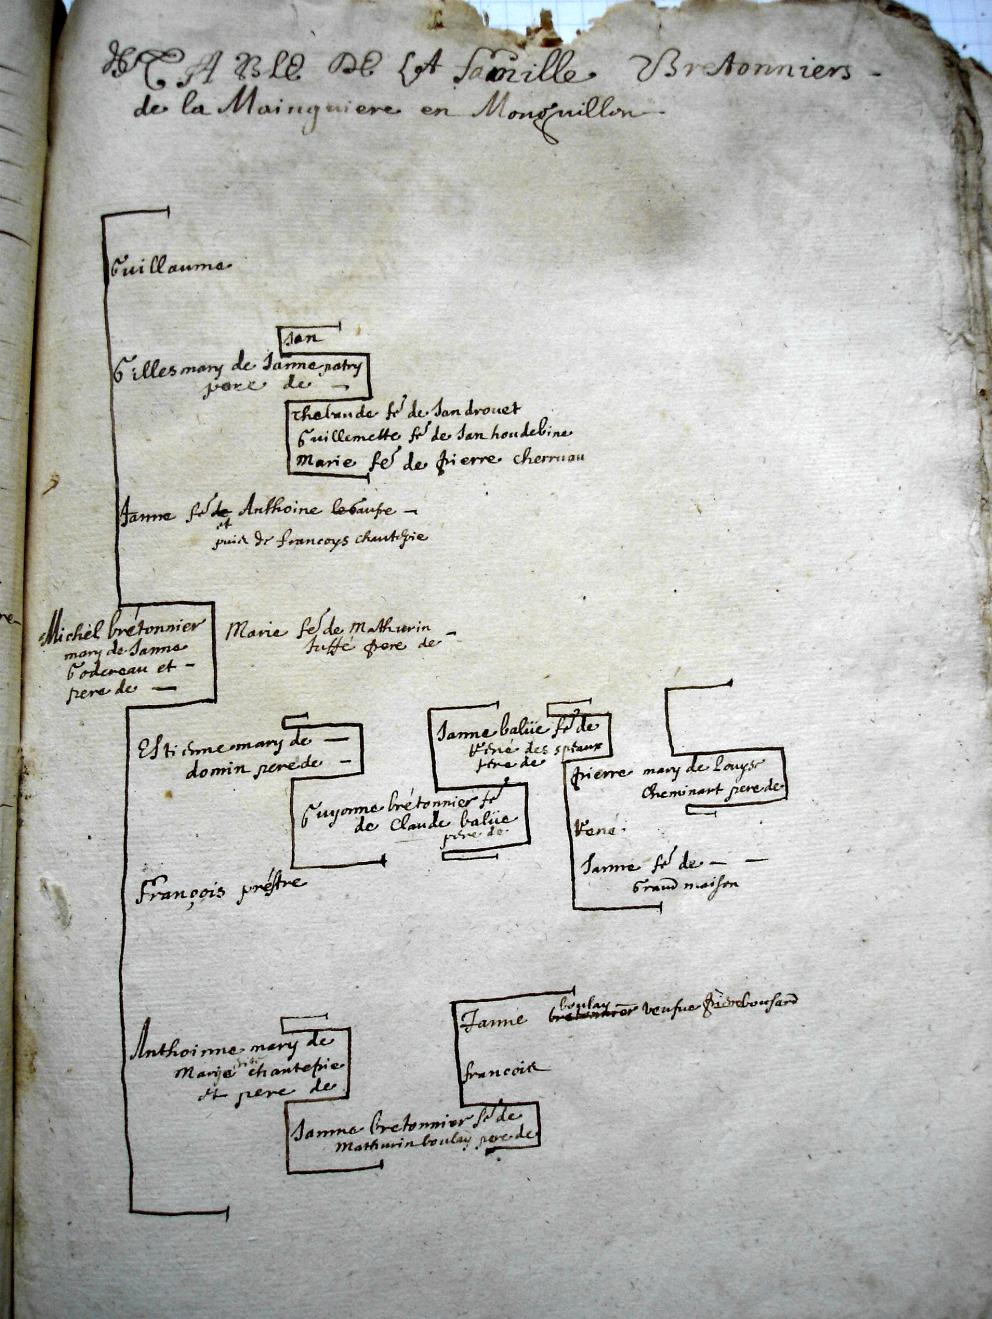 TABLE DE LA famille Bretonniers
de la Mainguiere en Monguillon
Guillaume
Jan
Gilles mary de Janne patry
pere de
Thebaude fe de Jan drouet
Guillemette fe de Jan houdebine
Marie fe de pierre cherruau
Janne fe de Anthoine legaufre
et
puis de francoys chantepie
Michel brétonnier
mary de Janne
Godereau et
pere de
Marie fe de Mathurin
tuffé pere de
Estienne mary de
domin pere de
Guyonne brétonnier fe
de Claude balüe
pere de
Janne balüe fe de
René des
pere de
pierre mary de Louyse
Cheminart pere de
René
Janne fe de
Grand maison
François préstre
Anthoinne mary de
Marie chantepie
et pere de
Janne bretonnier fe de
Mathurin boulay pere de
Janne boulay bretonnier veufue pierre bousard
francois